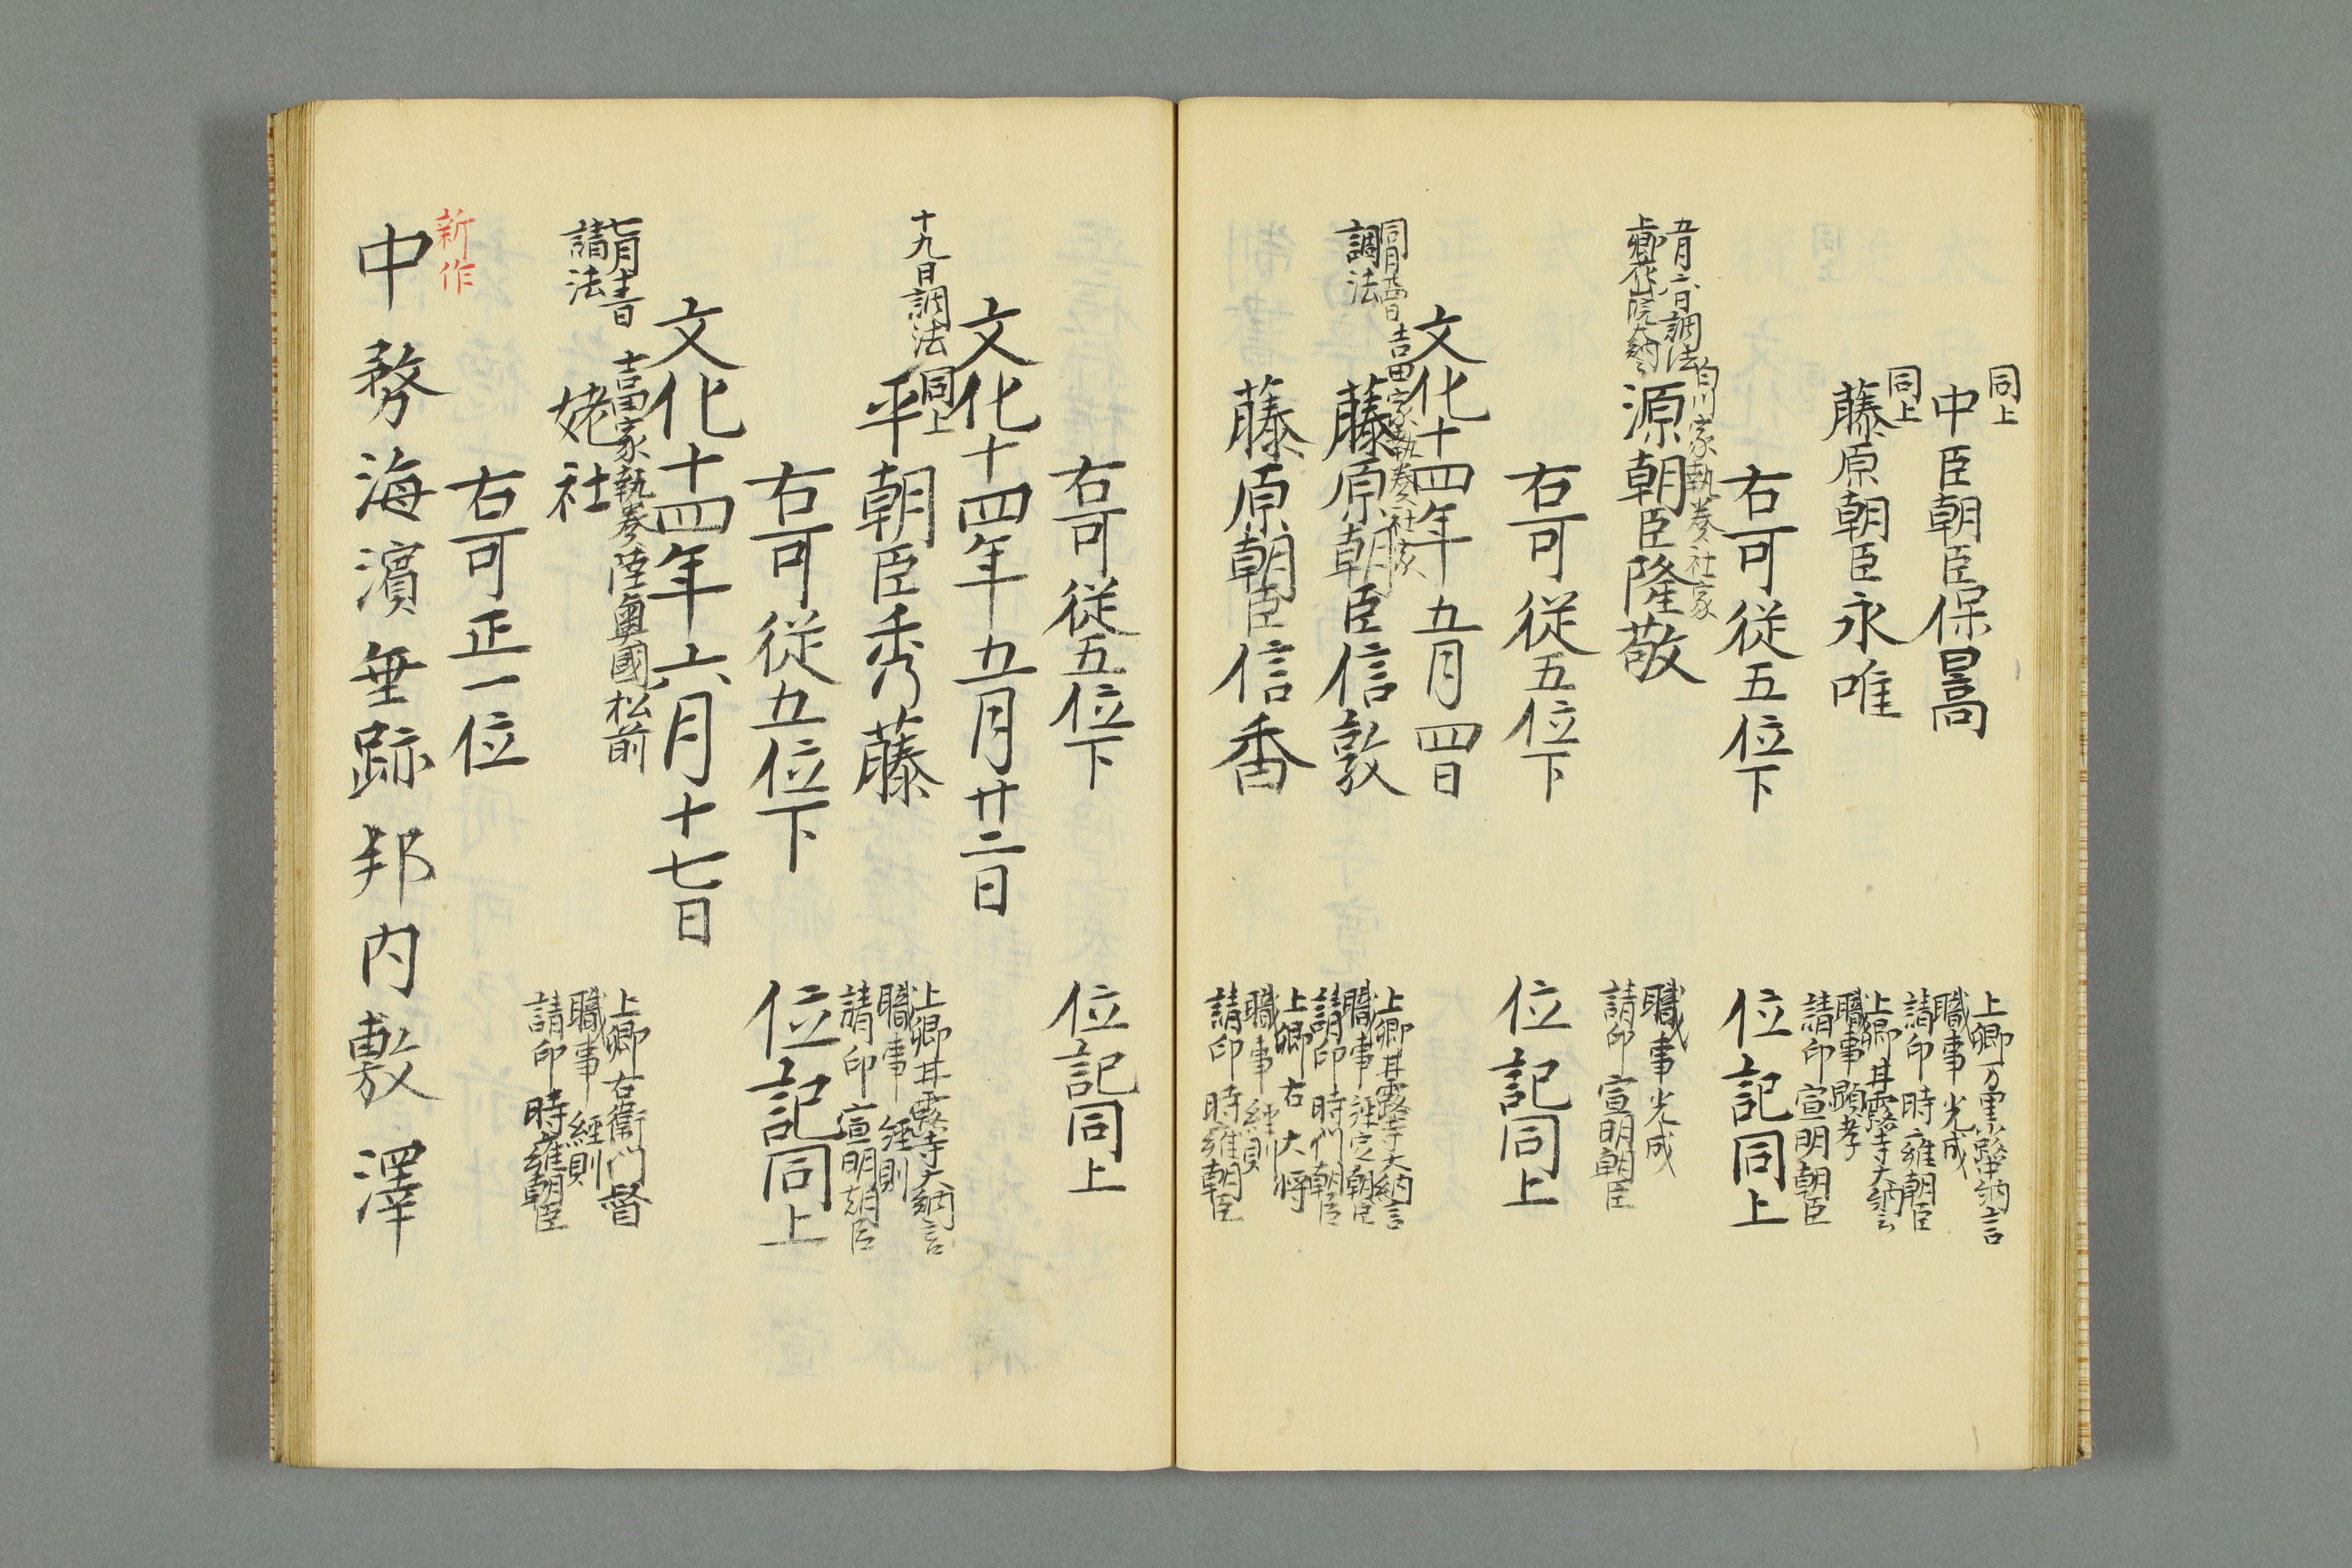 同上
中臣朝臣保暠
上卿万里小路中納言
職事光成
請印時雍朝臣
同上
藤原朝臣永唯
上卿甘露寺大納言
職事顕孝
請印宣明朝臣
右可従五位下
位記同上
五月六日調法
上卿花山院大納言
白川家執奏社家
源朝臣隆敬
職事光成
請印宣明朝臣
右可従五位下
位記同上
文化十四年五月四日
調法
吉田家執奏社家
藤原朝臣信敦
上卿甘露寺大納言
職事経定朝臣
請印時門朝臣
藤原朝臣信香
上卿右大将
職事経則
請印時雍朝臣
右可従五位下
位記同上
文化十四年五月廿二日
十九日調法
同上
平朝臣秀藤
上卿甘露寺大納言
職事経則
請印宣明朝臣
右可従五位下
位記同上
文化十四年六月十七日
請法
吉田家執奏陸奥國松前
姥社
上卿右衛門督
職事経則
請印時雍朝臣
右可正一位
新作
中務海濱垂跡邦内敷澤